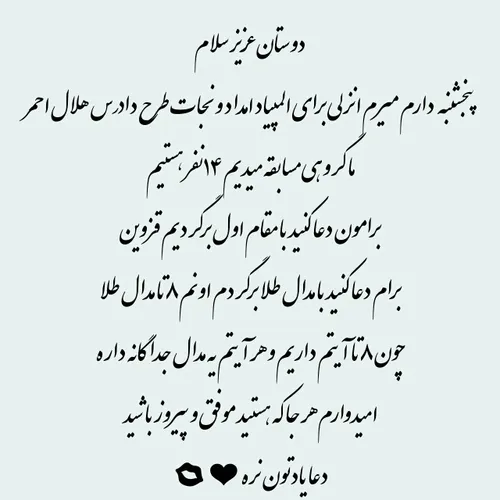 دوستان عزیز سلام
پنجشنبه دارم میرم انزلی برای المپیاد امداد و نجات طرح دادرس هلال احمر
ما گروهی مسابقه میدیم ۱۴ نفر هستیم
برامون دعا کنید با مقام اول برگردیم قزوین
برام دعا کنید با مدال طلا برگردم اونم ۸ تا مدال طلا
چون ۸ تا آیتم داریم و هر آیتم یه مدال جداگانه داره
امیدوارم هر جا که هستید موفق و پیروز باشید
دعا یادتون نره ❤ 💋